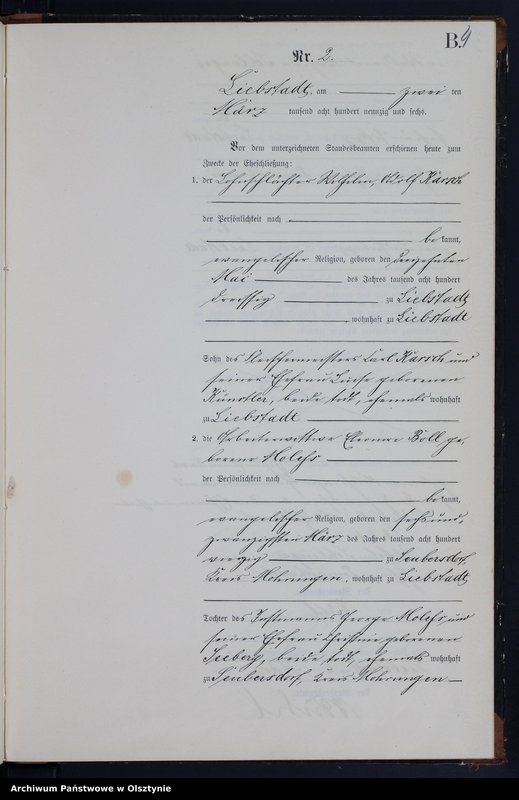 B. 4
Nr. 2.
Liebstadt, am zwei ten
März tausend acht hundert neunzig und sechs.
Vor dem unterzeichneten Standesbeamten erschienen heute zum
Zwecke der Eheschließung:
1. der Lohnschlächter Wilhelm, Adolf Karsch
der Persönlichkeit nach
be kannt,
evangelischer Religion, geboren den dreizehnten
Mai des Jahres tausend acht hundert
dreissig zu Liebstadt
, wohnhaft zu Liebstadt
Sohn des Fleischermeisters Carl Karsch und
seiner Ehefrau Luise geborenen
Künstler, beide todt, ehemals wohnhaft
zu Liebstadt
2. die Arbeiterwittwe Eleonore Böll ge-
borene Molchs
der Persönlichkeit nach
be kannt,
evangelischer Religion, geboren den sechsund-
zwanzigsten März des Jahres tausend acht hundert
vierzig zu Seubersdorf,
Kreis Mohrungen, wohnhaft zu Liebstadt
Tochter des Instmanns George Molchs und
seiner Ehefrau Christine geborenen
Seeberg, beide todt, ehemals wohnhaft
zu Seubersdorf, Kreis Mohrungen
Archiwum Państwowe w Olsztynie